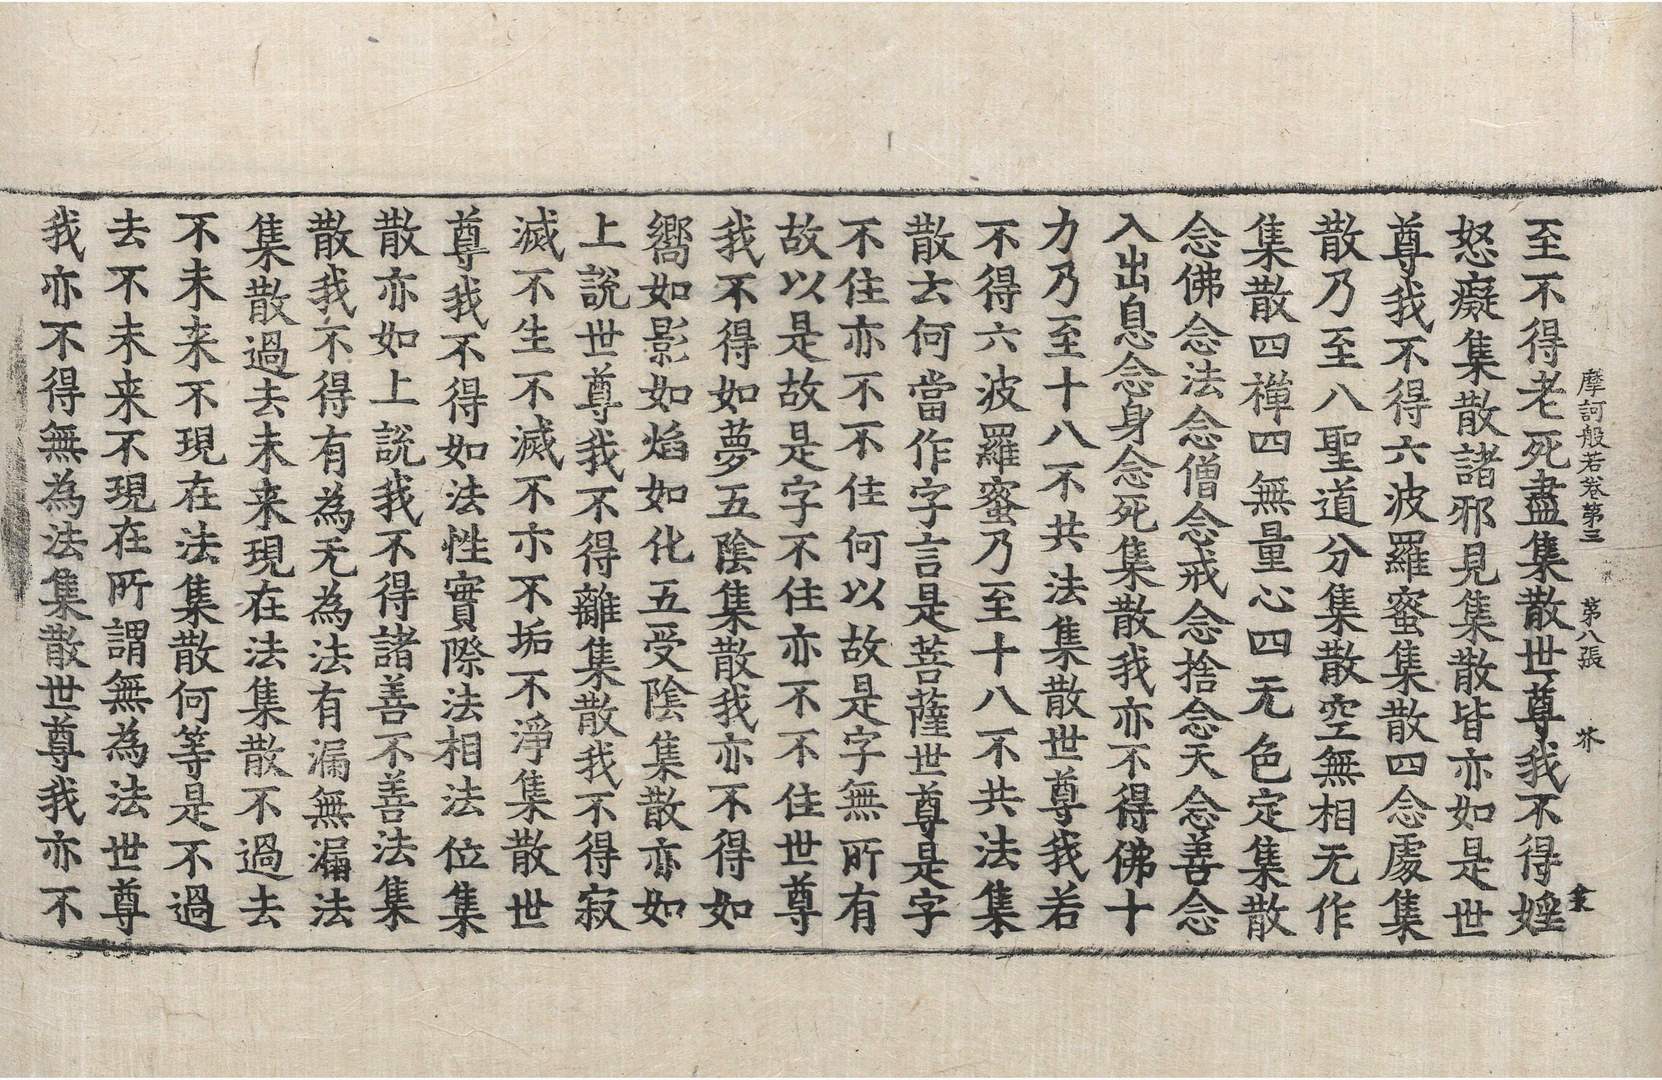 摩訶般若卷第三 第八張 芥
至不得老死盡集散世尊我不得婬
怒癡集散諸邪見集散皆亦如是世
尊我不得六波羅蜜集散四念處集
散乃至八聖道分集散空無相无作
集散四禪四無量心四无色定集散
念佛念法念僧念戒念捨念天念善念
入出息念身念死集散我亦不得佛十
力乃至十八不共法集散世尊我若
不得六波羅蜜乃至十八不共法集
散云何當作字言是菩薩世尊是字
不住亦不不住何以故是字無所有
故以是故是字不住亦不不住世尊
我不得如夢五陰集散我亦不得如
嚮如影如焰如化五受陰集散亦如
上說世尊我不得離集散我不得寂
滅不生不滅不亦不垢不淨集散世
尊我不得如法性實際法相法位集
散亦如上說我不得諸善不善法集
散我不得有為无為法有漏無漏法
集散過去未来現在法集散不過去
不未来不現在法集散何等是不過
去不未来不現在所謂無為法世尊
我亦不得無為法集散世尊我亦不